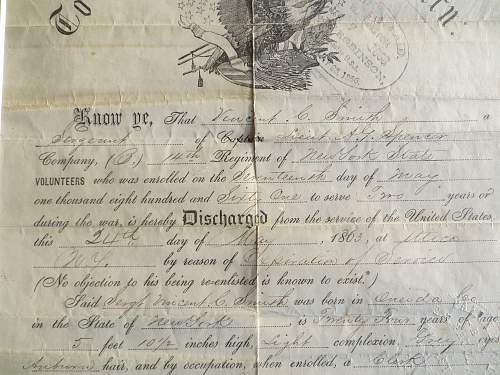 To
ern:
ROBINSON,
Know ye, That Vincent C. Smith a
Sergeant of Captain Lieut A. G. Spencer
Company, (B.) 14th Regiment of New York State
VOLUNTEERS who was enrolled on the Seventeenth day of May
one thousand eight hundred and Sixty One to serve Two years or
during the war, is hereby Discharged from the service of the United States
this 24th day of May, 1863, at Utica
N.Y. by reason of Expiration of Service
(No objection to his being re-enlisted is known to exist.*)
Said Sergt Vincent C. Smith was born in Oneida Co.
in the State of New York, is Twenty Four years of age,
5 feet 10½ inches high, Light complexion, Grey eyes
Auburn hair, and by occupation, when enrolled, a Clerk